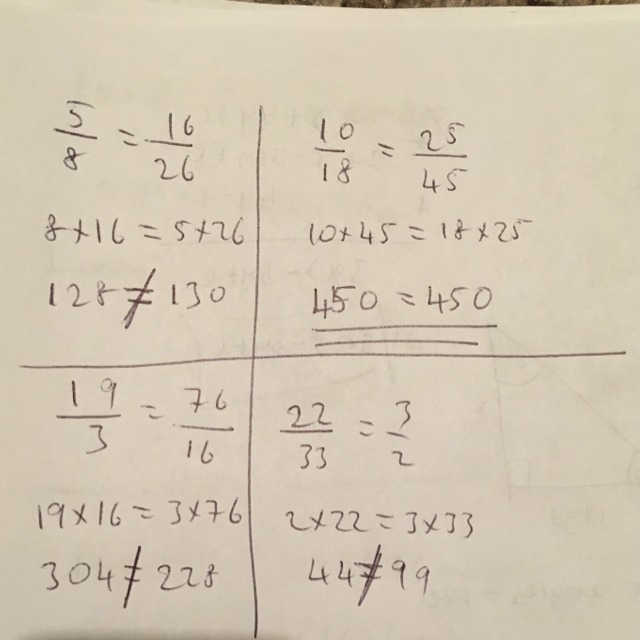 5/8 = 16/26
8×16 = 5×26
128 ≠ 130
10/18 = 25/45
10×45 = 18×25
450 = 450
19/3 = 76/16
19×16 = 3×76
304 ≠ 228
22/33 = 3/2
2×22 = 3×33
44 ≠ 99